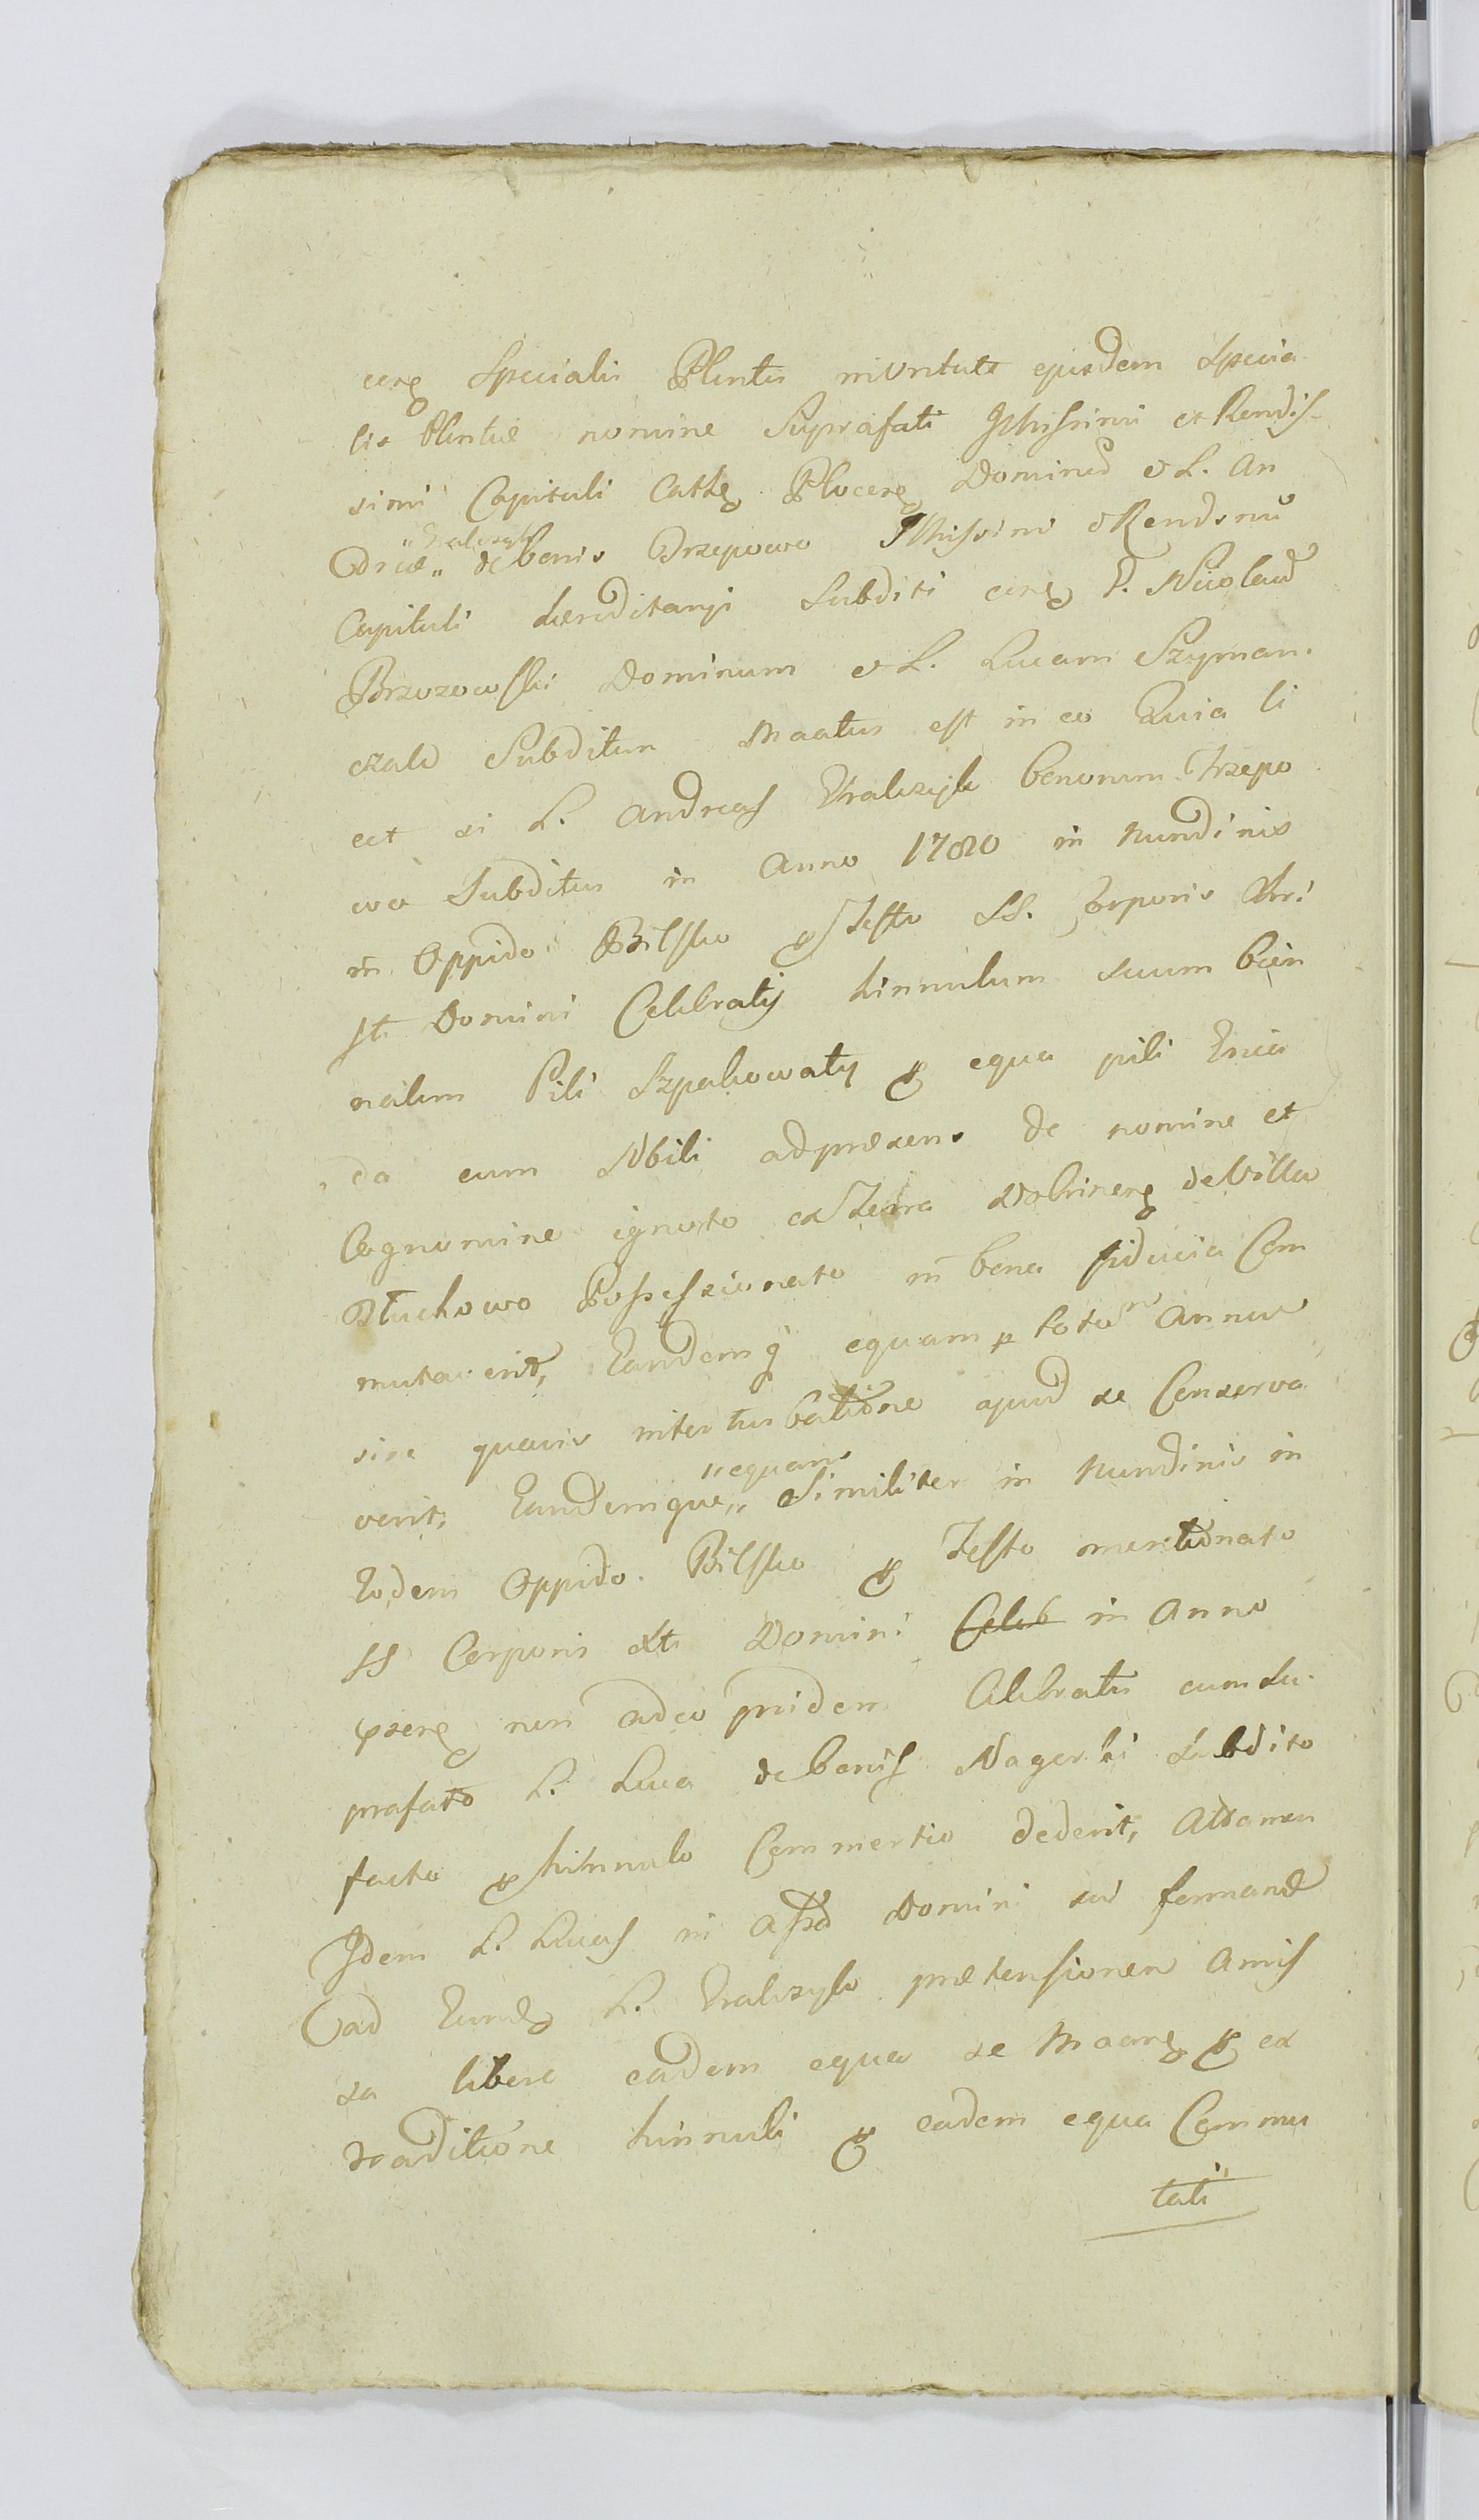 ceng Specialis Plentis in virtute ejusdem Specia
lis Plentiæ nomine Suprafati Illmissimi et Rendis-
simi Capituli Cathg Ploceng Dominū & L. An
"Kralczyk
dreæ„ de bonis Trzepowo Illmissimi & Rendsmi
Capituli hæreditarii Subditi ceng P. Nicolaū
Brzozowski Dominum & L. Lucam Szyman.
czak Subditum Maatus est in eo Quia li
cet si L. Andreas Kralczyk bonorum Trzepo
wo Subditus in Anno 1780 in Nundinis
in Oppido Bilsko p Festo SS. Corporis Chri
sti Domini Celebratis hinnulum suum bien
nalem Pili Szpakowaty p equa pili Gnia
da cum Nbili ad præsens de nomine et
Cognomine ignoto ex Terra Dobrineng de Villa
Tłuchowo Possessionato in bona fiducia Com
mutaverit, Eandemq equam p totum Annum
sine quavis interturbatione apud se Conserva
verit, Eandemque„ "equam Similiter in Nundinis in
Eodem Oppido Bilsko p Festo mentionato
SS Corporis Xti Domini Celeb in Anno
pseng non adeo pridem Celebratis cum Su.
prafato L. Luca de bonis Nagorki Subdito
facto p hinnulo Commertio dederit, Attamen
Idem L. Lucas in Assa Domini sui formand
ad Eundg L. Kralczyk prætensionem Amis
sa libere eadem equa se Maang p ex
traditione hinnuli p eadem equa Commu
tati